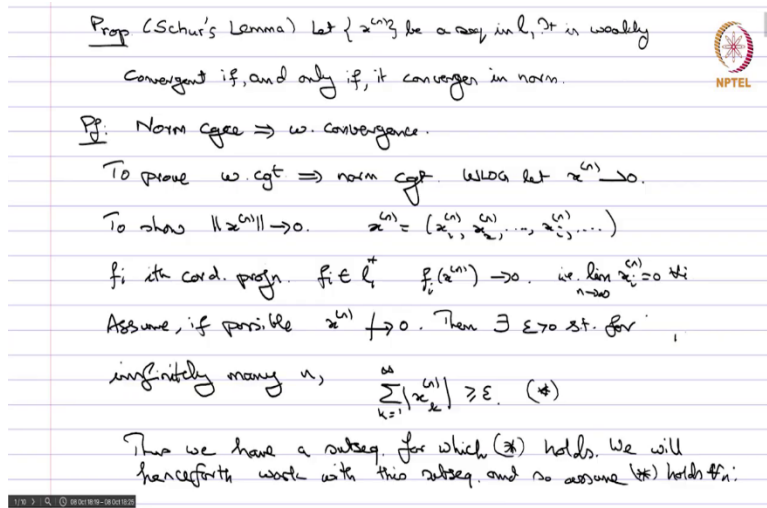 Prop (Schur's Lemma) Let {x^(n)} be a seq in l₁. It is weakly
NPTEL
convergent if, and only if, it converges in norm.
Pf: Norm cgce ⇒ w. convergence.
To prove w. cgt ⇒ norm cgt. WLOG let x^(n) ⇀ 0.
To show ||x^(n)|| → 0. x^(n) = (x₁^(n), x₂^(n), ..., x_i^(n), ...)
f_i ith cord. projn. f_i ∈ l₁* f_i(x^(n)) → 0. i.e. lim_{n→∞} x_i^(n) = 0 ∀i
Assume, if possible x^(n) ↛ 0. Then ∃ ε>0 s.t. for
infinitely many n, ∑_{k=1}^∞ |x_k^(n)| ≥ ε. (*)
Thus we have a subseq. for which (*) holds. We will
henceforth work with this subseq. and so assume (*) holds ∀n.
1/10
08 Oct 18:19 - 08 Oct 18:25